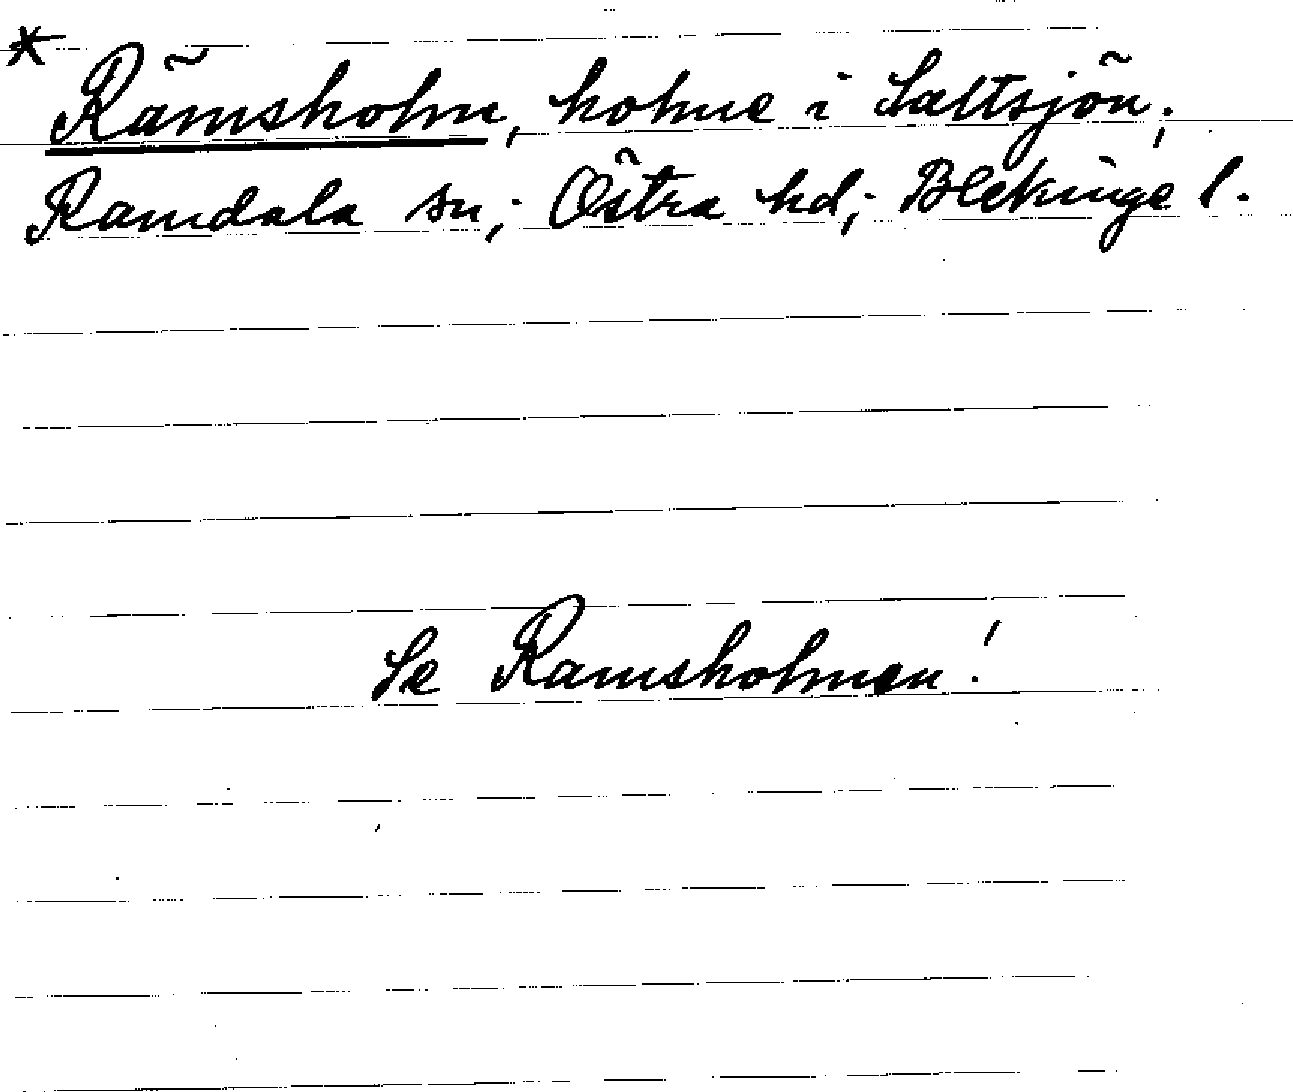 * Rämsholm, holme i Saltsjön;
Ramdala sn; Östra hd; Blekinge l.
Se Ramsholmen!